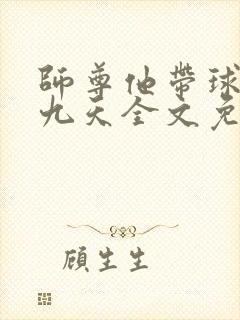 師尊他帶球
九天全文免
顧生生